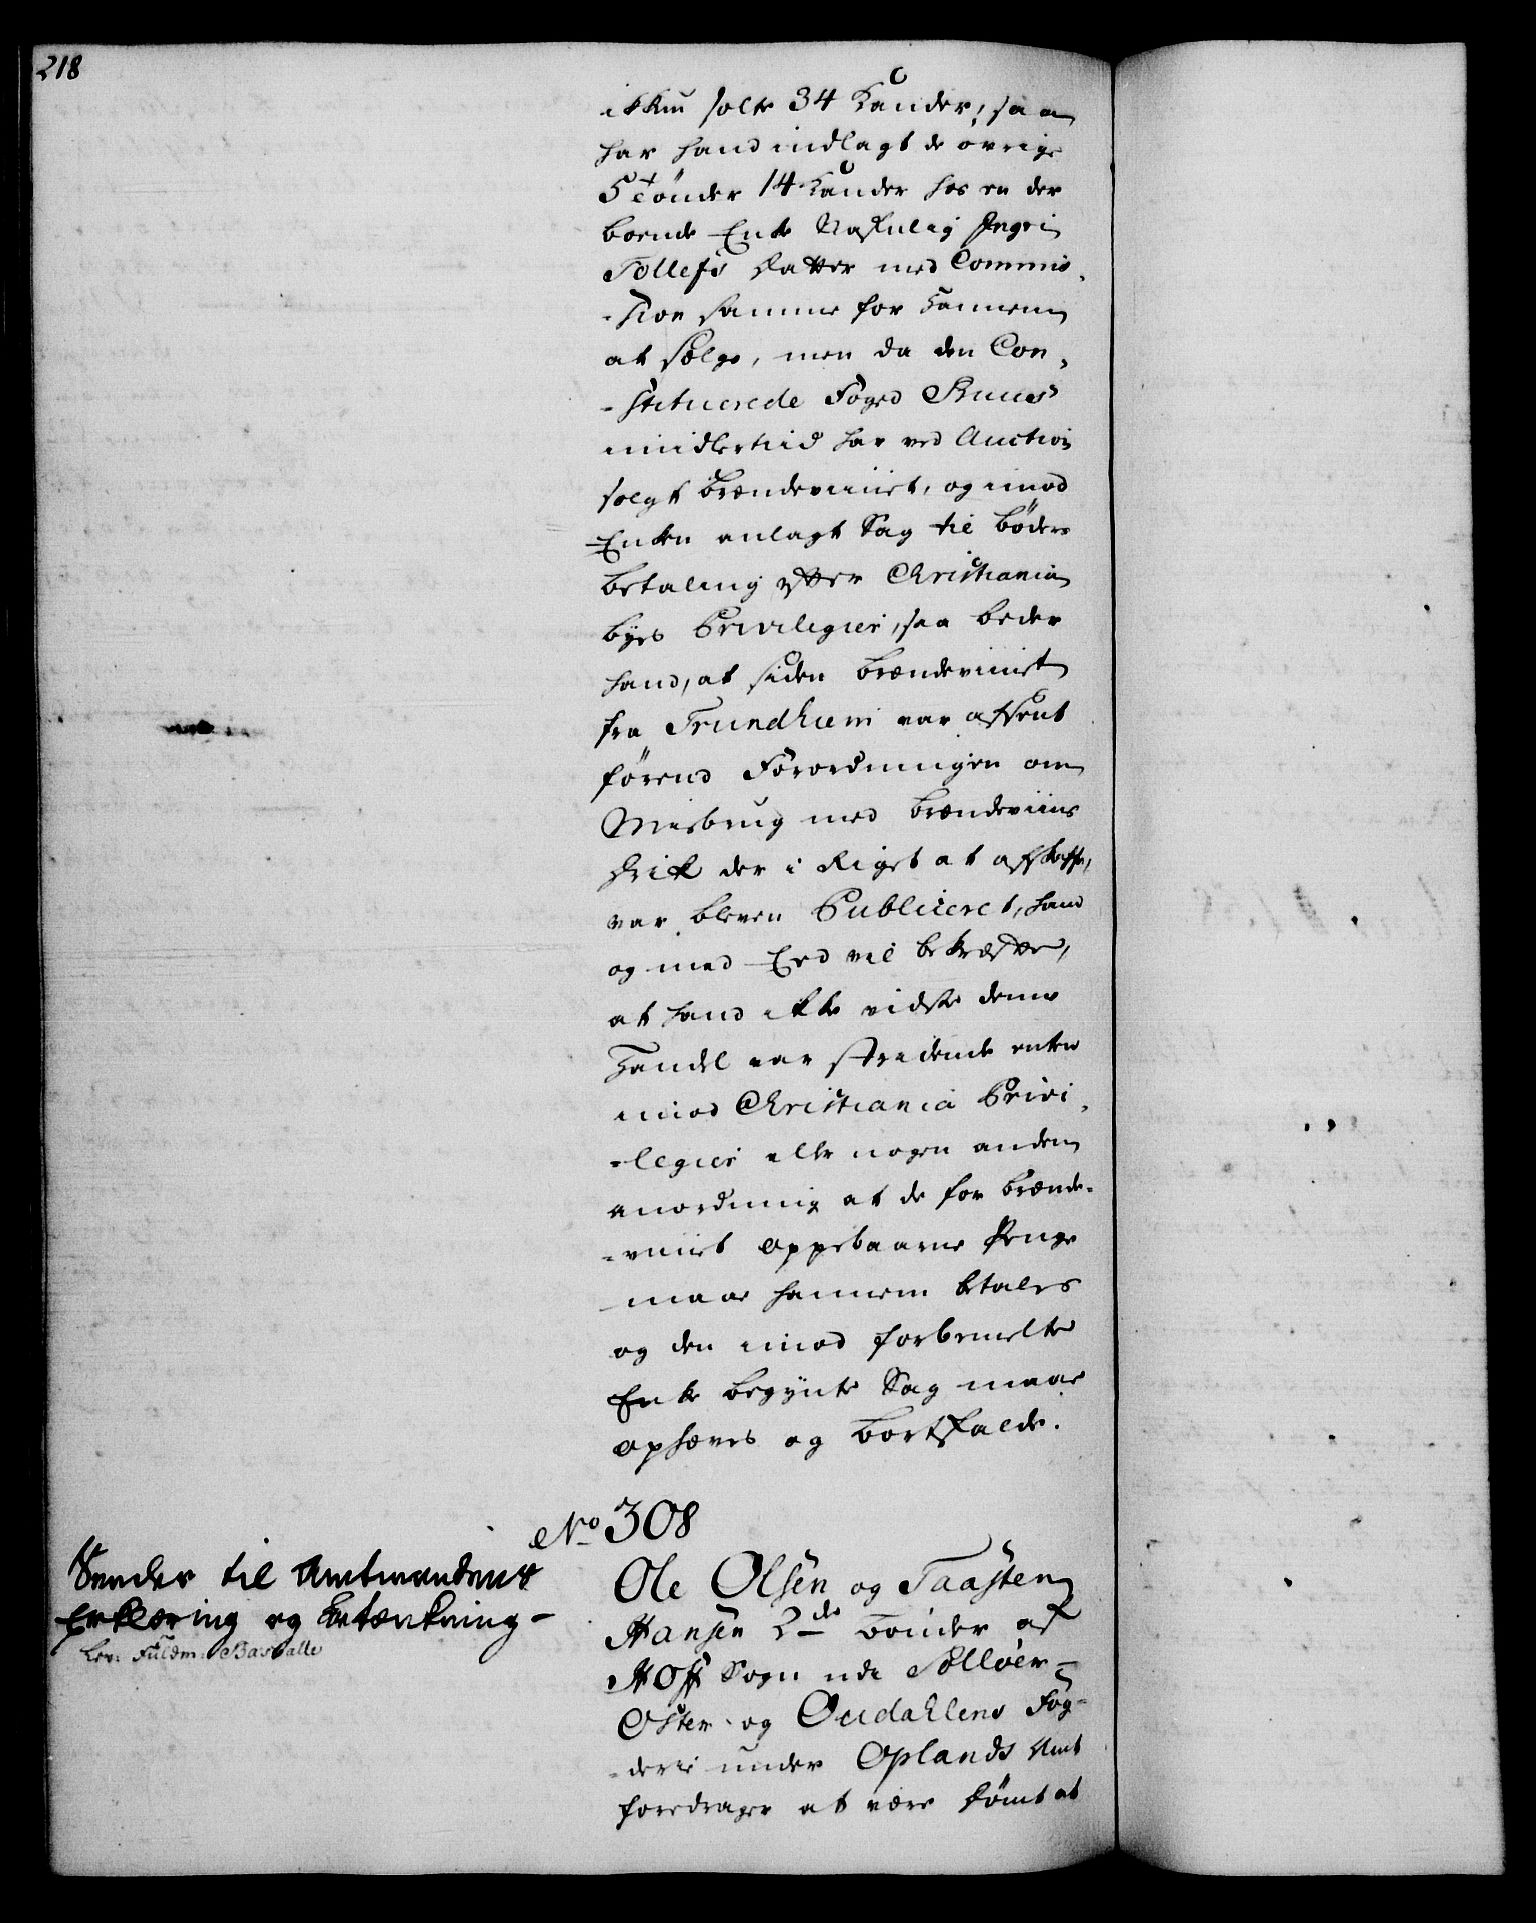 218
ikkun solte 34 Kander, saa
har hand indlagt de øvrige
5 Tønder 14 Kander hos en der
boende Enke Nafnlig Ingri
Tollefs Datter med Commis-
-sion samme for hannem
at sælge, men da den Con-
-stituerede Foged Knues
imidlertiid har ved Auction
solgt Brændeviinet, og imod
Enken anlagt Sag til bøders
betaling efter Christiania
byes Privilegier, saa beder
hand, at siden Brændeviinet
fra Trundhiem var afsent
førend Forordningen om
Misbrug med Brændeviins
drik der i Riget at afskaffe,
var bleven Publiceret, hand
og med Eed vil bekræfte,
at hand ikke vidste denne
Handel var stridende enten
imod Christiania Privi-
-legier eller nogen anden
anordning at de for Brænde-
-viinet oppebaarne Penge
maae hannem betales
og den imod forbemelte
Enke begynte Sag maae
ophæves og bortfalde.
No 308
Ole Olsen og Taasten
Hansen 2de bønder af
Hoff Sogn udi Solløer
Oster og Oudahlens Fog-
-derie under Oplands Amt
foredrager at være dømt at
Sendes til Amtmandens
Erklæring og betænkning-
Lev: Fuldm: Barballe